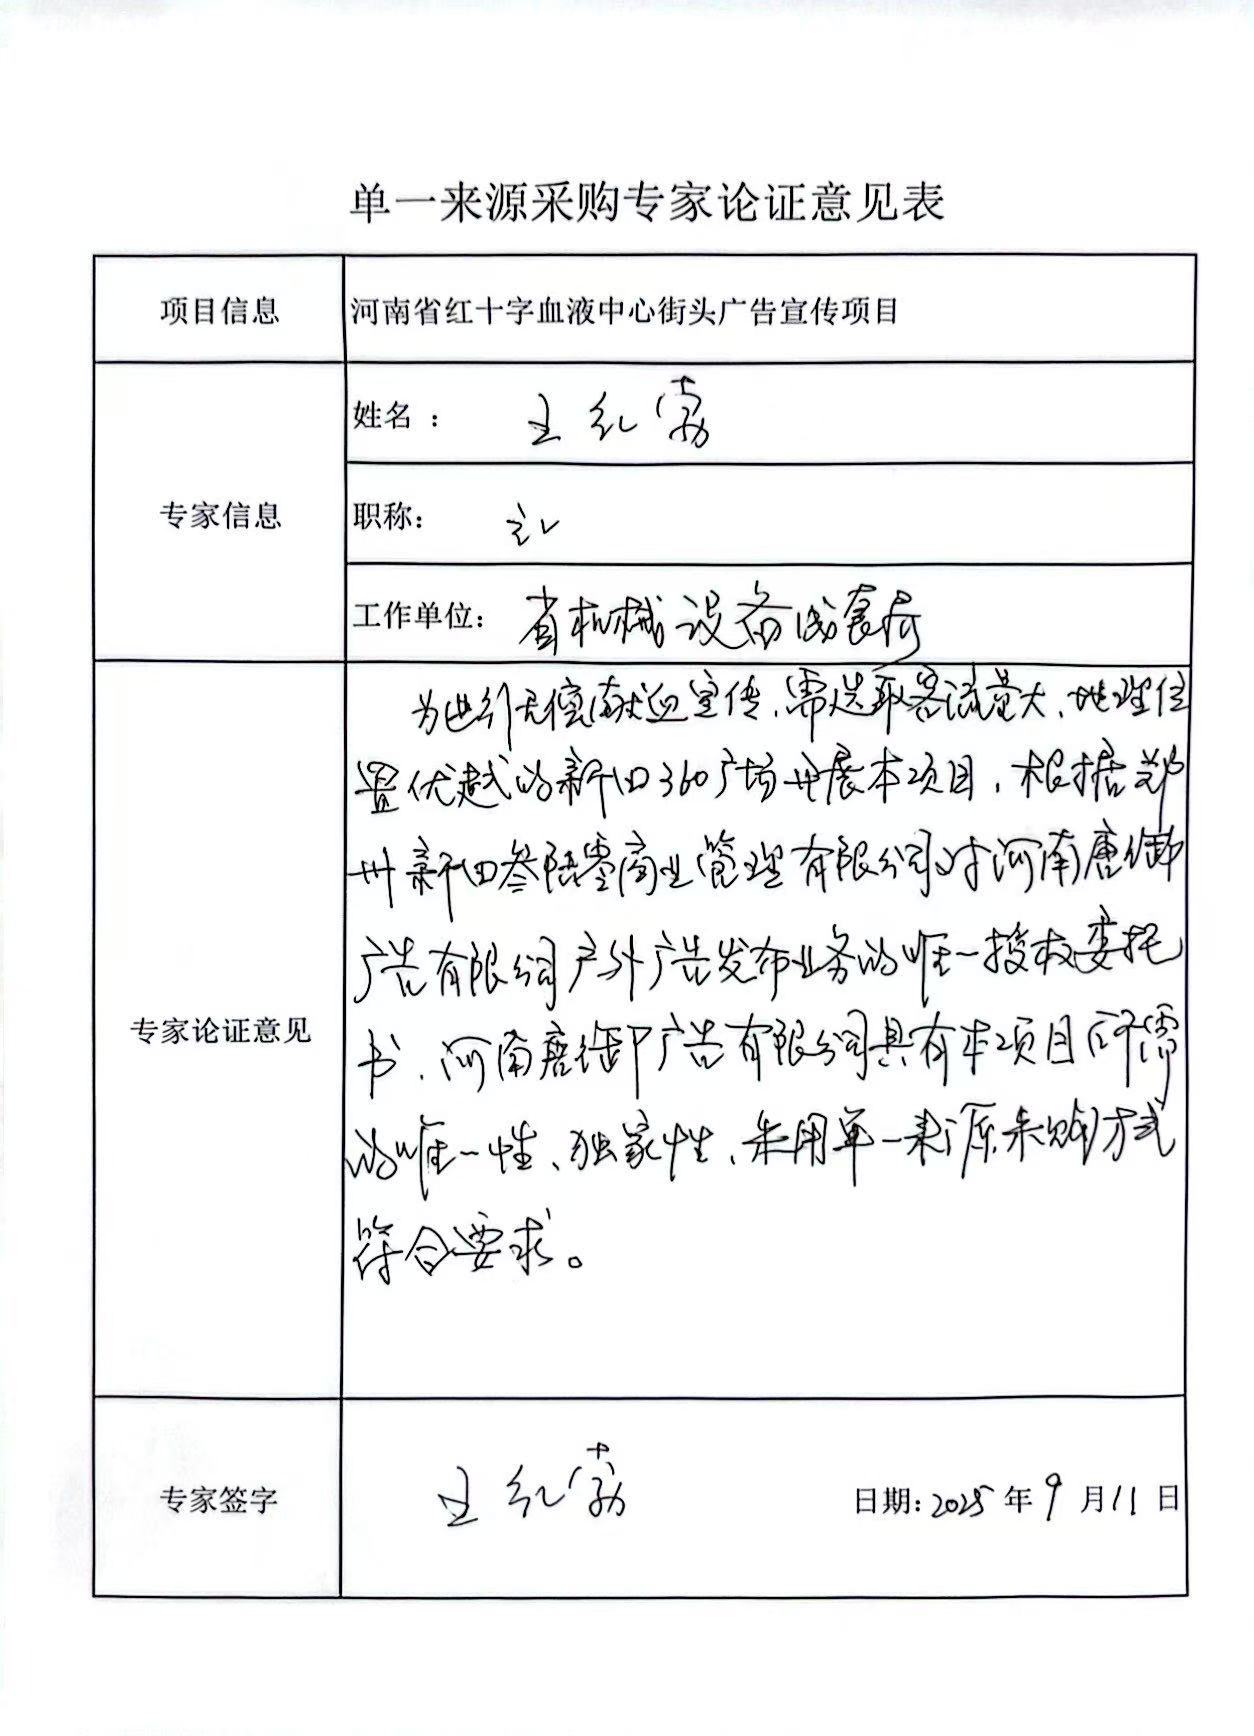 单一来源采购专家论证意见表
项目信息
河南省红十字血液中心街头广告宣传项目
专家信息
姓名：王红
职称：
工作单位：省机械设备成套局
专家论证意见
为进行无偿献血宣传，需选取客流量大、地理位
置优越的新田360广场开展本项目，根据郑
州新田叁陆零商业管理有限公司对河南唐御
广告有限公司户外广告发布业务的唯一授权委托
书，河南唐御广告有限公司具有本项目所需
的唯一性、独家性，采用单一来源采购方式
符合要求。
专家签字
王红
日期：2025年9月11日